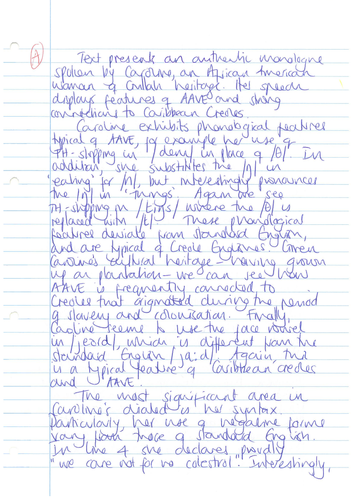 A
Text presents an authentic monologue
spoken by Caroline, an African American
woman of Gullah heritage. Her speech
displays features of AAVE and strong
connections to Caribbean Creoles.
Caroline exhibits phonological features
typical of AAVE, for example her use of
TH-stopping in /dem/ in place of /ð/. In
addition, she substitutes the /ŋ/ in
'eating' for /n/, but interestingly pronounces
the /ŋ/ in 'things'. Again we see
TH-stopping in where the /θ/ is
replaced with /t/. These phonological
features deviate from Standard English,
and are typical of Creole Englishes. Given
Caroline's heritage - having grown
up on plantation - we can see how
AAVE is frequently connected to
Creoles that originated during the period
of slavery and colonisation. Finally,
Caroline seems to use the face vowel
in which is different from the
standard English Again, this
is a typical feature of Caribbean creoles
and AAVE.
The most significant area in
Caroline's dialect is her syntax.
Particularly, her use of negative forms
vary from those of standard English.
In line 4 she declares proudly
"we care not for no colestrol". Interestingly,